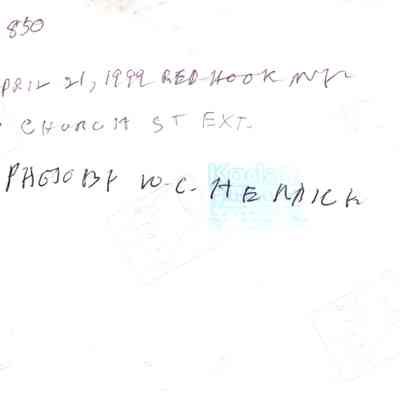 850
PRIL 21, 1999 RED HOOK N.Y.
CHURCH ST EXT.
PHOTO BY W.C. HERRICK
Kodak